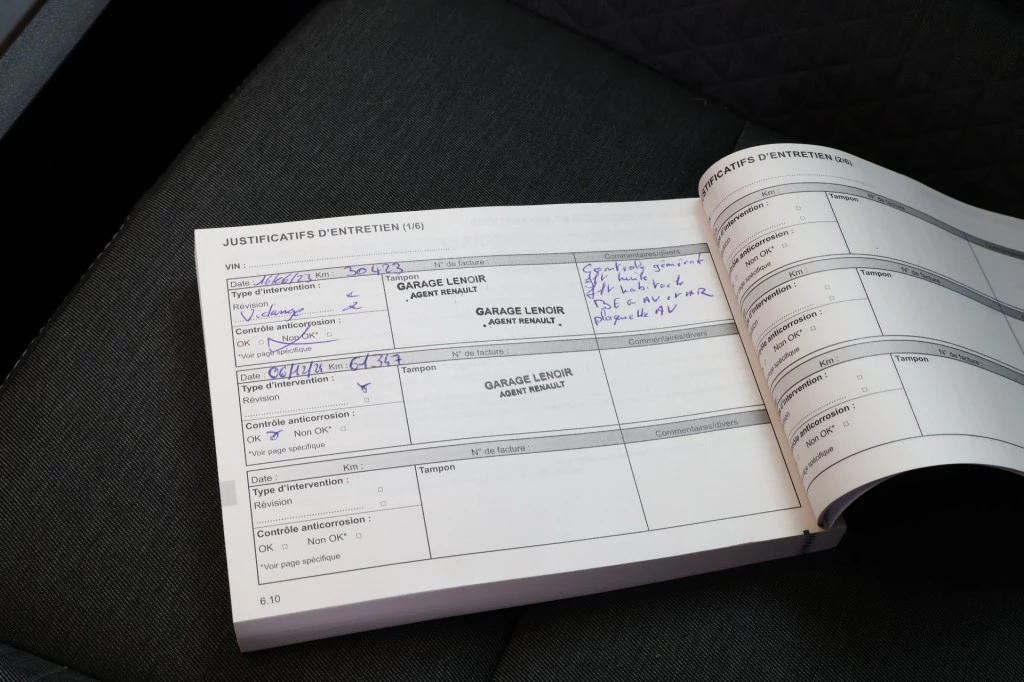 JUSTIFICATIFS D'ENTRETIEN (1/6)
VIN :
Date : 16/06/23 Km : 30423 N° de facture : Commentaires/divers
Type d'intervention :
Révision
Vidange
Contrôle anticorrosion :
OK Non OK*
*Voir page spécifique
Tampon
GARAGE LENOIR
AGENT RENAULT
GARAGE LENOIR
AGENT RENAULT
Controle général
flt huile
flt habitacle
AV et AR
plaquette AV
Date : 06/12/ Km : 61.347 N° de facture : Commentaires/divers
Type d'intervention :
Révision
Contrôle anticorrosion :
OK Non OK*
*Voir page spécifique
Tampon
GARAGE LENOIR
AGENT RENAULT
Date : Km : N° de facture : Commentaires/divers
Type d'intervention :
Révision
Contrôle anticorrosion :
OK Non OK*
*Voir page spécifique
Tampon
6.10
JUSTIFICATIFS D'ENTRETIEN (2/6)
Km : N° de facture
d'intervention :
Contrôle anticorrosion :
Non OK*
spécifique
Tampon
Km : N° de facture
d'intervention :
anticorrosion :
Non OK*
spécifique
Tampon
Km : N° de facture
d'intervention :
anticorrosion :
Non OK*
spécifique
Tampon